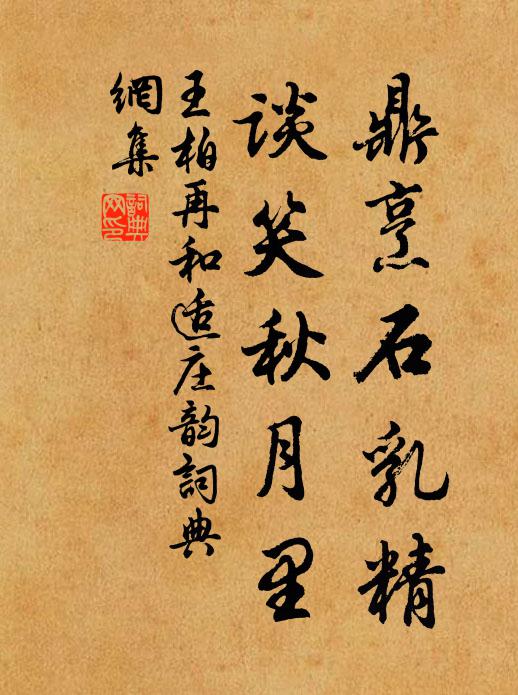 鼎烹石乳精
谈笑秋月里
王柏再和适庄韵词典
網集
詞典网印